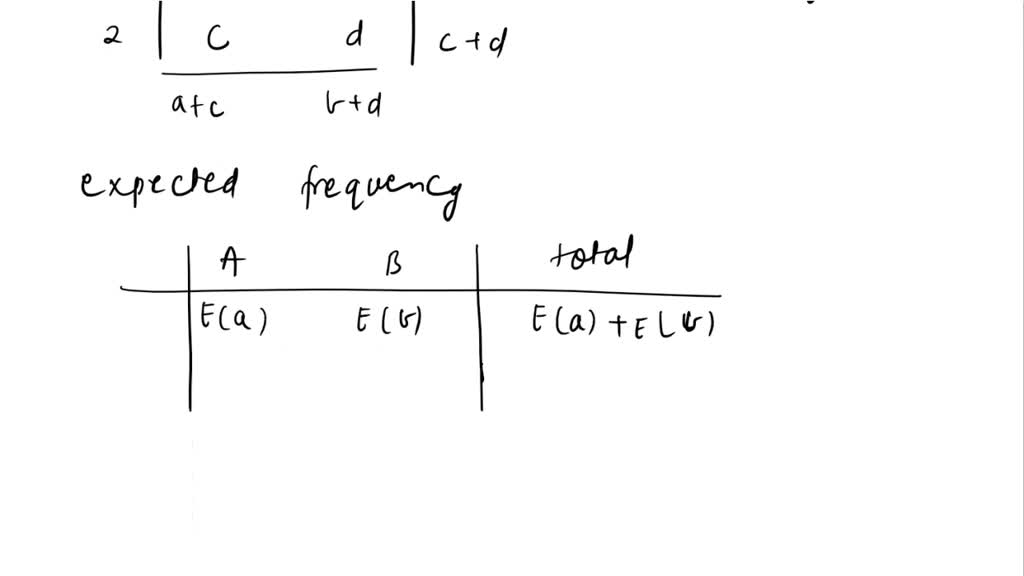 2 c d c+d
a+c b+d
expected frequency
A B total
E(a) E(b) E(a)+E(b)